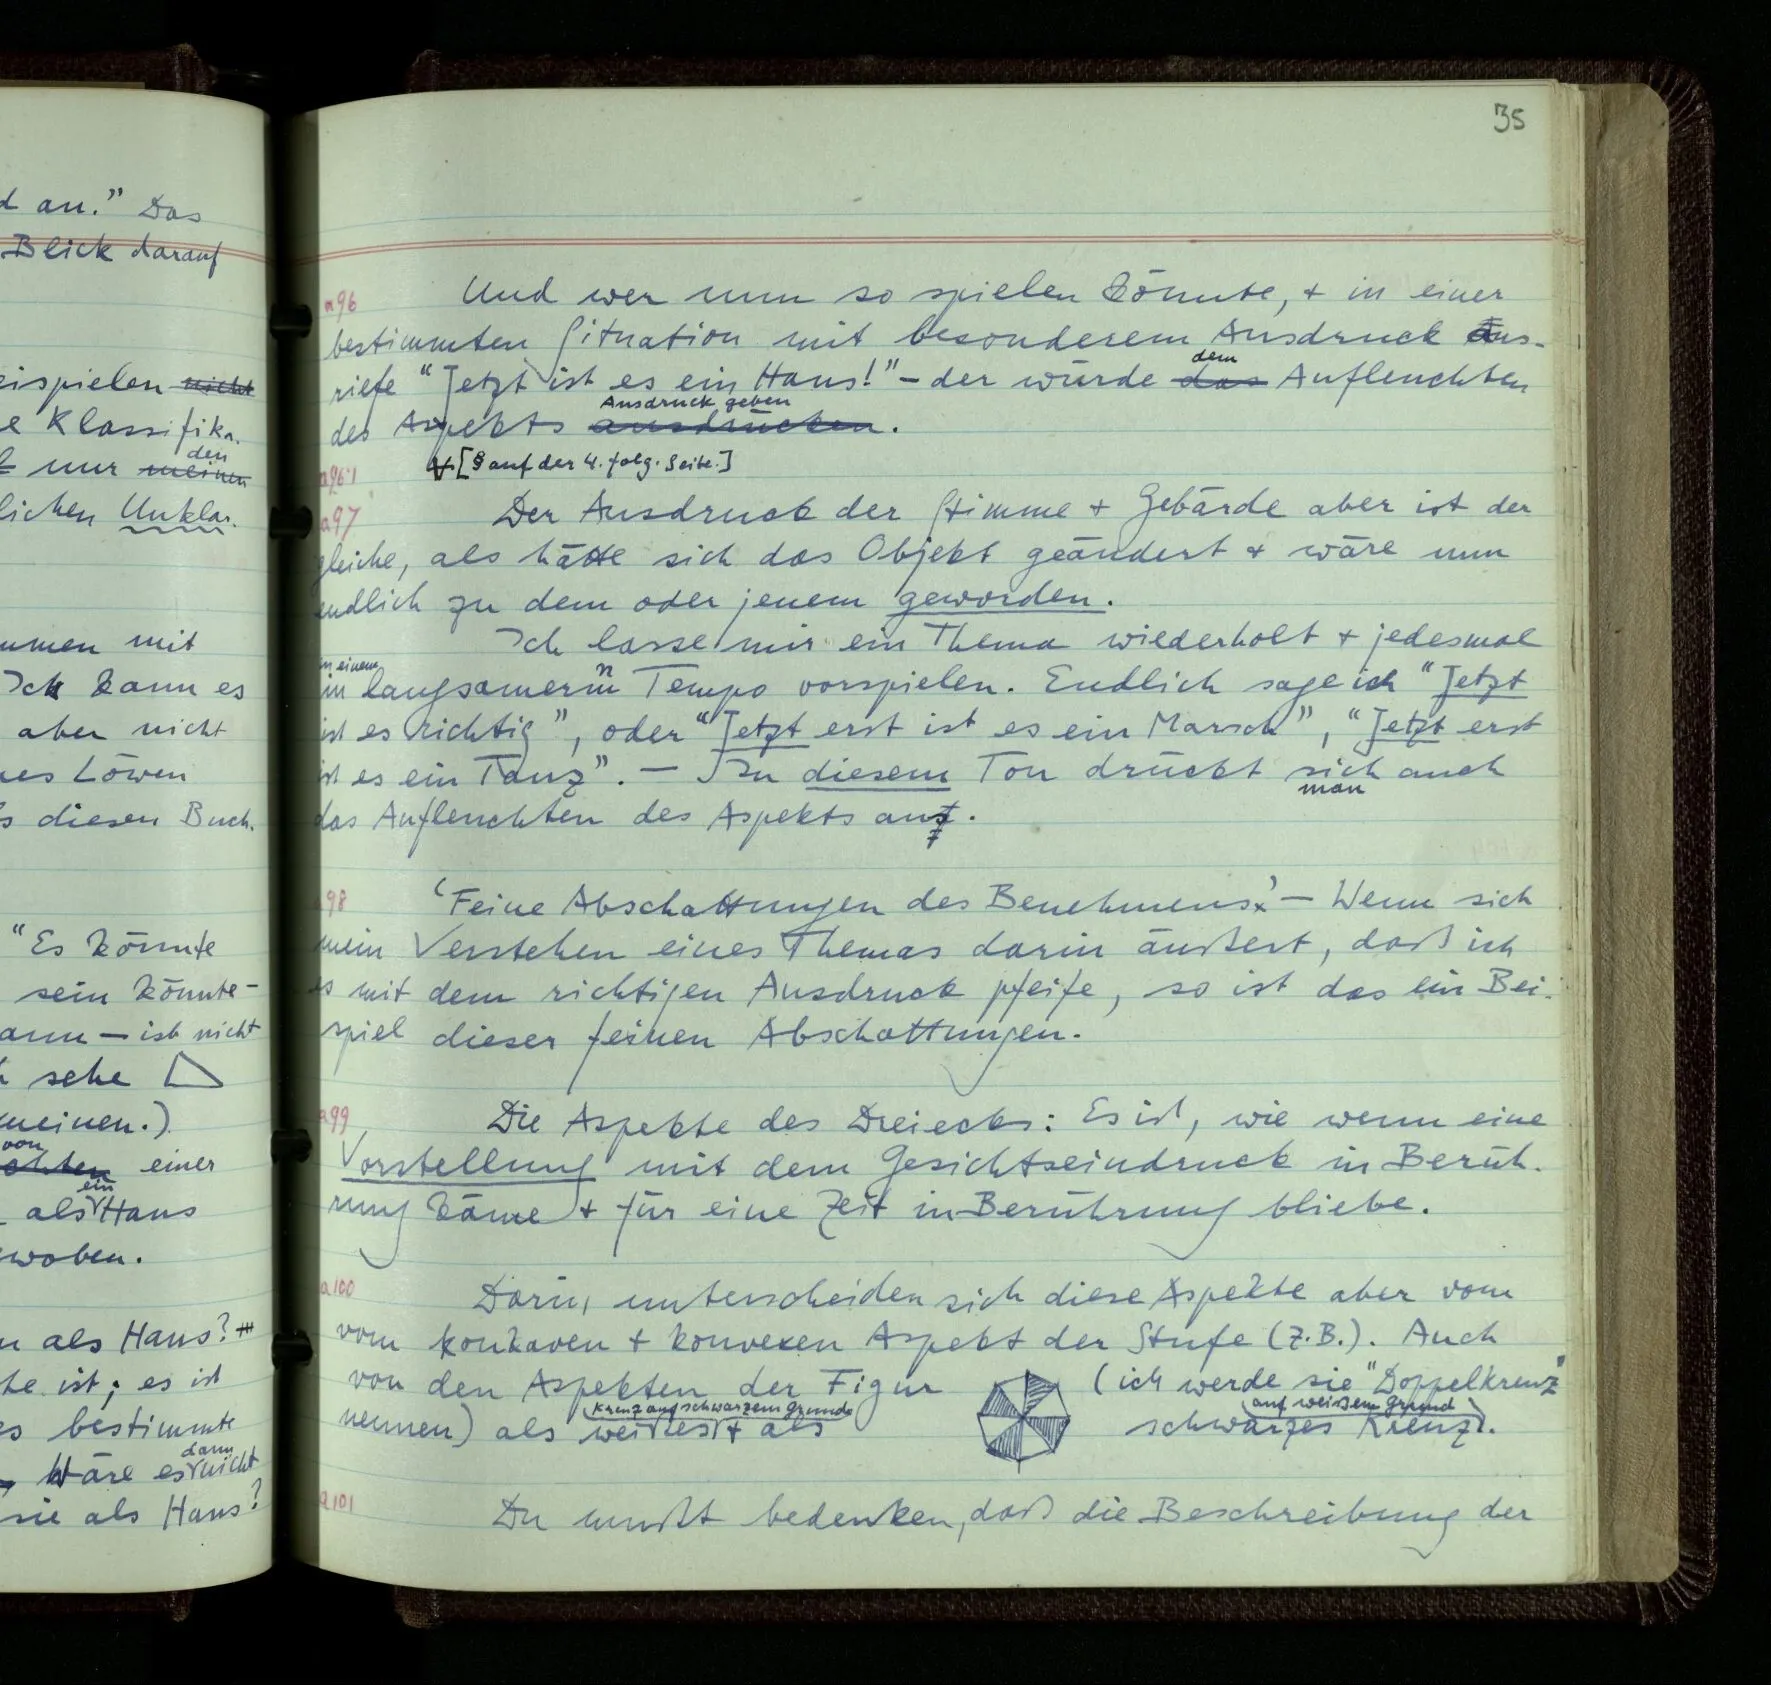 d an." Das
Blick darauf
eispielen nicht
e Klassifika.
den
nur meinen
lichen Unklar.
mmen mit
Ich kann es
aber nicht
nes Löwen
s diesen Buch.
"Es könnte
sein könnte –
ann – ist nicht
h sehe
meinen.)
von
einer
ein
als Haus
woben.
n als Haus?
te ist; es ist
es bestimmte
dann
Wäre es nicht
sie als Haus?
35
a96 Und wer nun so spielen könnte, + in einer
bestimmten Situation mit besonderem Ausdruck aus-
dem
riefe "Jetzt ist es ein Haus!" – der würde das Aufleuchten
Ausdruck geben
des Aspekts ausdrücken.
a96.1 [§ auf der 4. folg. Seite.]
a97 Der Ausdruck der Stimme + Gebärde aber ist der
gleiche, als hätte sich das Objekt geändert + wäre nun
endlich zu dem oder jenem geworden.
Ich lasse mir ein Thema wiederholt + jedesmal
in einem n
in langsamerm Tempo vorspielen. Endlich sage ich "Jetzt
ist es richtig", oder "Jetzt erst ist es ein Marsch", "Jetzt erst
ist es ein Tanz". – In diesem Ton drückt sich auch
man
das Aufleuchten des Aspekts aus.
a98 'Feine Abschattungen des Benehmens.' – Wenn sich
mein Verstehen eines Themas darin äußert, daß ich
es mit dem richtigen Ausdruck pfeife, so ist das ein Bei-
spiel dieser feinen Abschattungen.
a99 Die Aspekte des Dreiecks: Es ist, wie wenn eine
Vorstellung mit dem Gesichtseindruck in Berüh-
rung käme + für eine Zeit in Berührung bliebe.
a100 Darin, unterscheiden sich diese Aspekte aber vom
vom konkaven + konvexen Aspekt der Stufe (z.B.). Auch
von den Aspekten der Figur (ich werde sie "Doppelkreuz"
Kreuz auf schwarzem Grunde auf weißem Grund
nennen) als weißes + als schwarzes Kreuz.
a101 Du mußt bedenken, daß die Beschreibung der